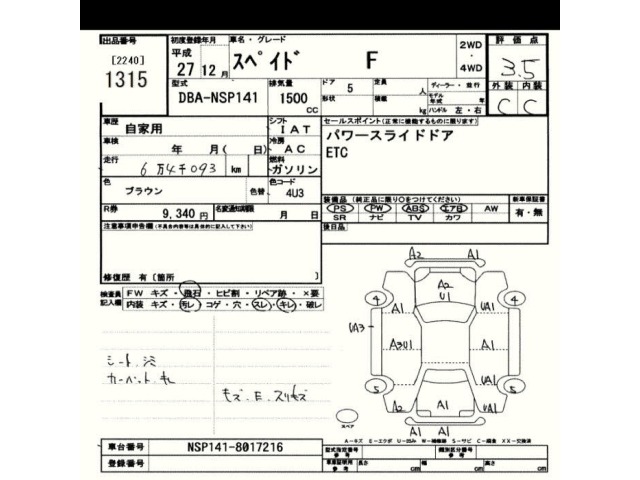 出品番号 初度登録年月 車名・グレード 評価点
[2240] 平成 スペイド F 2WD ・ 4WD 3.5
1315 27年 12月
型式 排気量 ドア 5 定員 人 ディーラー・並行 外装 内装
DBA-NSP141 1500 CC 形状 積載 kg モデル年式 年 C C
ハンドル 左・右
車歴 自家用 シフト IAT セールスポイント(正常に機能するものに限ります)
車検 年 月( 日) 冷房 AC パワースライドドア
走行 6万4千093 km 燃料 ガソリン ETC
色 ブラウン 色替 色コード 4U3
装備品(純正品に限り○をつけてください) 新車保証書
R券 9,340円 名変通知期限 月 日 PS PW ABS エアB AW 有・無
SR ナビ TV カワ
注意事項申告欄(不具合内容等は具体的に記入して下さい) 後日品
修復歴 有 [箇所 ]
検査員記入欄 FW キズ・飛石・ヒビ割・リペア跡・×要
内装 キズ・汚レ・コゲ・穴・スレ・キレ・破レ
A2 A1
A2
U1
4 4
A1 UA1
UA3 A3U1 A1
A1 UA1
5 5
A2 A1 UA1
A1 A1
シート.シミ
カーペット.キレ
キズ.E.スリキズ
スペア
A-キズ E-エクボ U-凹み W-補修跡 S-サビ C-腐食 XX-交換済
車台番号 NSP141-8017216 型式指定番号 参考 類別区分番号 参考
登録番号 車庫証明用 参考 長さ cm 幅 cm 高さ cm